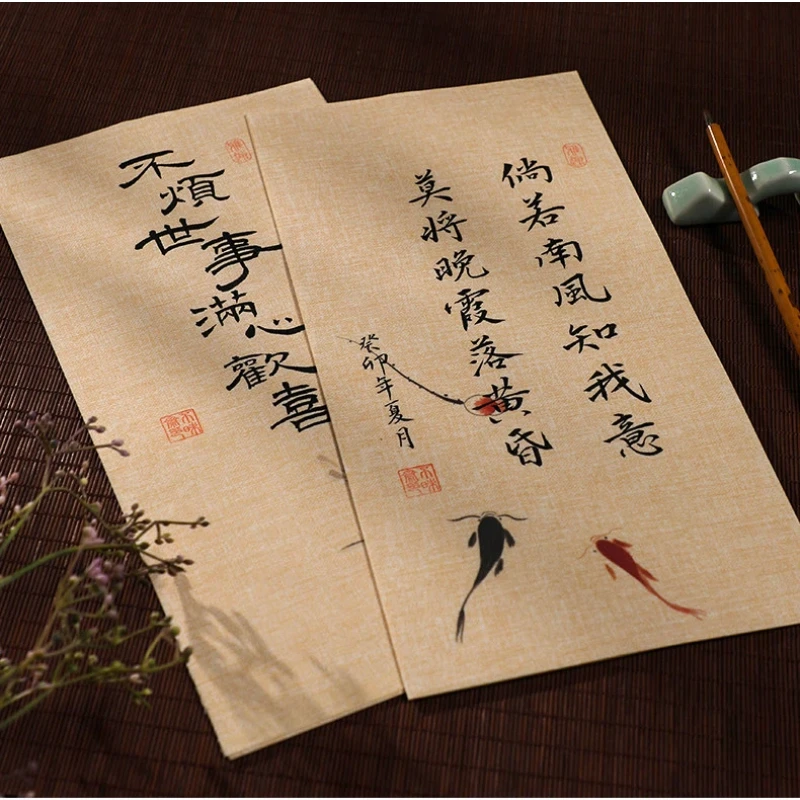 倘若南風知我意
莫將晚霞落黄昏
癸卯年夏月
不煩世事滿心歡喜